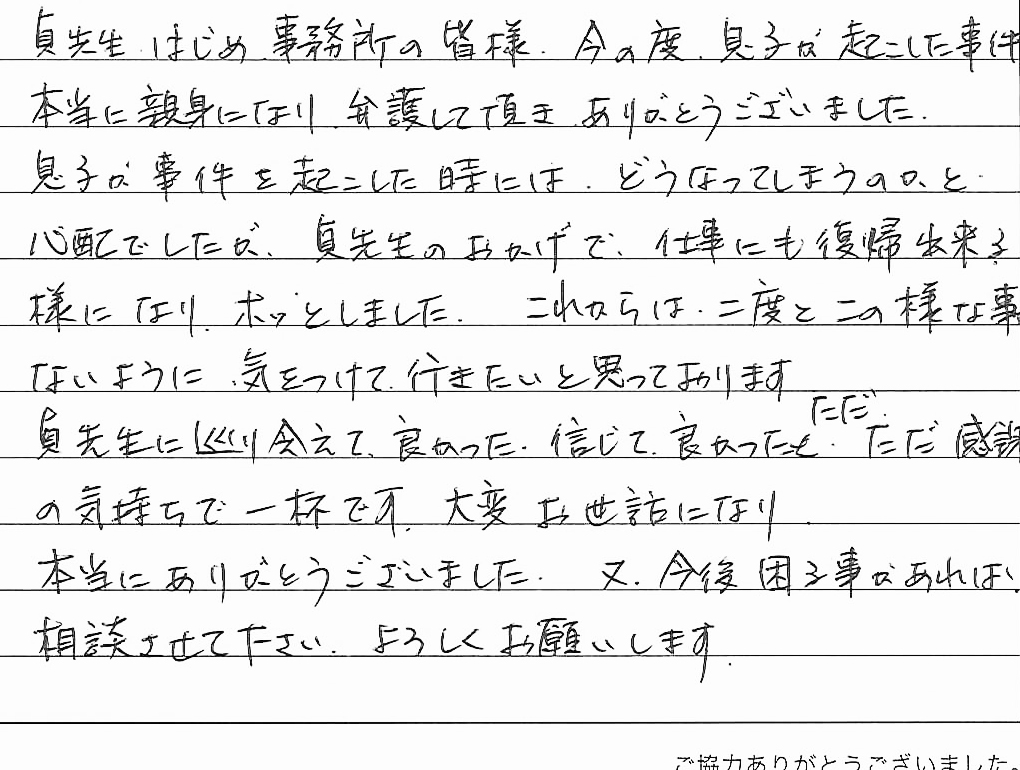 貞先生 はじめ 事務所の 皆様. 今の度. 息子が 起こした事件
本当に親身になり 弁護して頂き ありがとうございました.
息子が 事件 を 起こした 時には. どうなってしまうのか と.
心配でしたが、 貞先生のおかげで、 仕事にも復帰出来る
様に なり. ホッとしました. これからは. 二度と この様な事
ないように 気をつけて 行きたいと思っております
ただ.
貞先生に巡り会えて、良かった. 信じて、良かったと. ただ 感謝
の気持ちで一杯です. 大変 お世話になり.
本当にありがとうございました. 又. 今後 困る事があれば.
相談させて下さい. よろしくお願いします.
ご協力ありがとうございました。